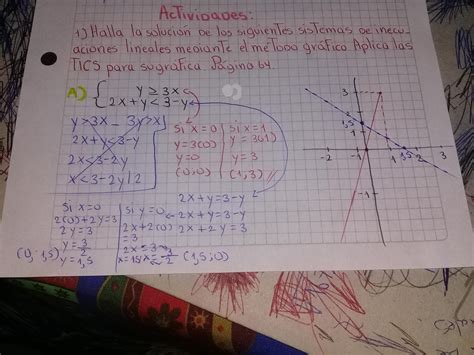 Actividades:
1) Halla la solución de los siguientes sistemas de inecu-
aciones lineales mediante el método gráfico Aplica las
TICS para su gráfica Página 64.
A) { y ≥ 3x
2x + y < 3 - y
y > 3x - 3y > x
2x + y < 3 - y
2x < 3 - 2y
x < 3 - 2y | 2
Si x = 0
y = 3(0)
y = 0
(0,0)
Si x = 1
y = 3(1)
y = 3
(1,3)
2x + y = 3 - y
2x + y = 3 - y
2x + 2y = 3
Si x = 0
2(0) + 2y = 3
2y = 3
y = 3/2
y = 1,5
(0,1,5)
Si y = 0
2x + 2(0)
= 3
2x = 3
x = 1,5 x = 3/2
(1,5,0)
3
2
1,5
-2 -1 1 1,5 2 3
-1